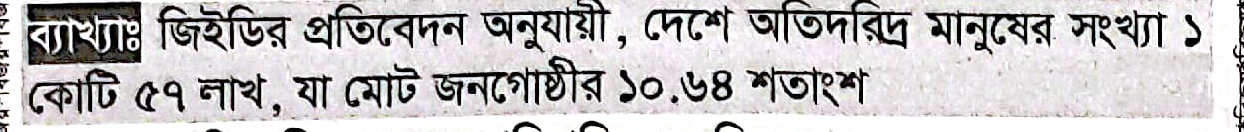 ব্যাখ্যাঃ জিইডির প্রতিবেদন অনুযায়ী, দেশে অতিদরিদ্র মানুষের সংখ্যা ১
কোটি ৫৭ লাখ, যা মোট জনগোষ্ঠীর ১০.৬৪ শতাংশ